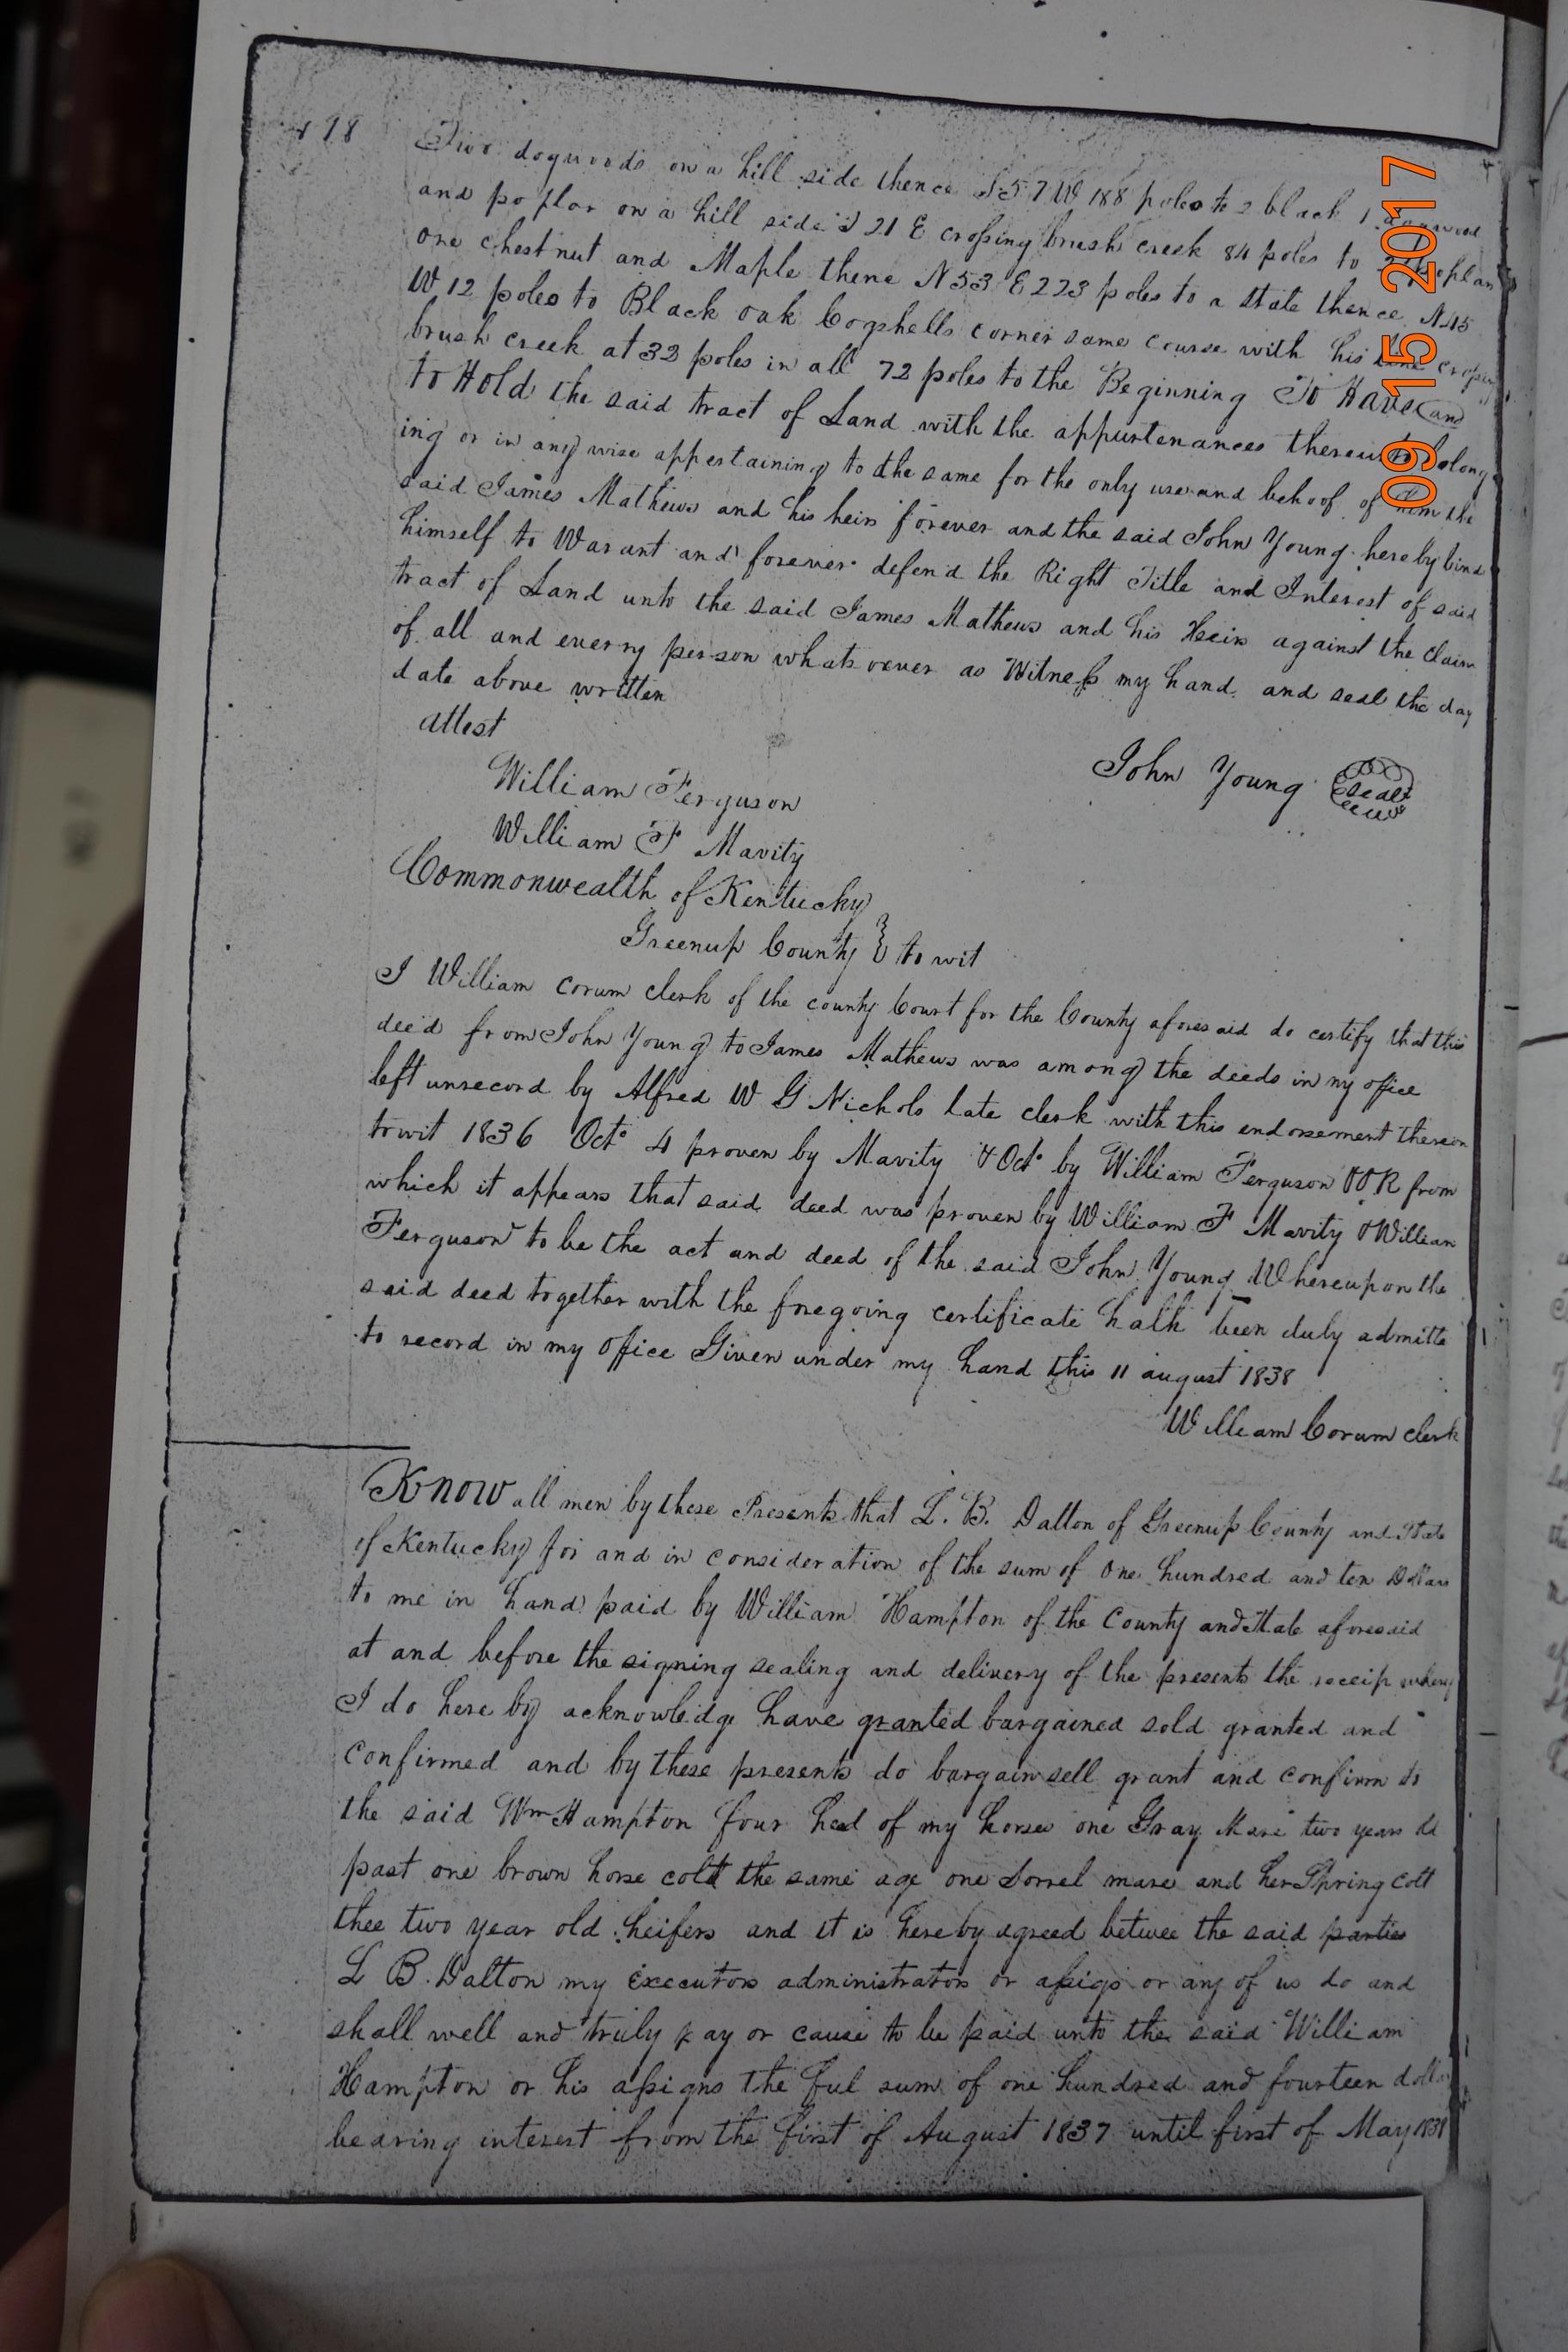 Two dogwoods on a hill side thence S 57 W 188 poles to 2 black 1 dogwood
and poplar on a hill side S 21 E crossing brush creek 84 poles to
one chestnut and Maple thence N 53 E 223 poles to a state thence N 45
W 12 poles to Black oak Cogshells corner same course with his line
brush creek at 32 poles in all 72 poles to the Beginning To Have and
to Hold the said tract of Land with the appurtenances thereunto belong
ing or in any wise appertaining to the same for the only use and behoof of him the
said James Mathews and his heirs forever and the said John Young hereby bind
himself to Warant and forever defend the Right Title and Interest of said
tract of Land unto the said James Mathews and his Heirs against the claim
of all and everry person whatsoever as Witness my hand and seal the day
date above written
attest
John Young Seal
William Ferguson
William F Mavity
Commonwealth of Kentucky
Greenup County } to wit
I William Corum clerk of the county Court for the County aforesaid do certify that this
deed from John Young to James Mathews was among the deeds in my office
left unrecord by Alfred W G Nichols late clerk with this endorsement thereon
towit 1836 Octo 4 proven by Mavity & Octo by William Ferguson OOR from
which it appears that said deed was proven by William F Mavity & William
Ferguson to be the act and deed of the said John Young Whereupon the
said deed together with the foregoing certificate hath been duly admitte
to record in my office Given under my hand this 11 august 1838
William Corum clerk
Know all men by these Presents that L. B. Dalton of Greenup County and State
of Kentucky for and in consideration of the sum of One hundred and ten Dollars
to me in hand paid by William Hampton of the County and State aforesaid
at and before the signing sealing and delivery of the presents the receip
I do here by acknowledge have granted bargained sold granted and
confirmed and by these presents do bargain sell grant and confirm to
the said Wm Hampton four hed of my horses one Gray Mare two years old
past one brown horse colt the same age one Sorrel mare and her Spring Colt
thee two year old heifers and it is hereby agreed betwee the said parties
L B. Dalton my Executors administrators or assigs or any of us do and
shall well and truly pay or cause to be paid unto the said William
Hampton or his assigns the ful sum of one hundred and fourteen dollars
bearing interest from the first of August 1837 until first of May
09 15 2017